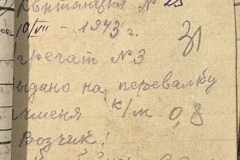 Квитанция № 25
10/VII - 1943 г.
31
грегат № 3
ыдано на перевалку
чменя к/м 0,8
Возчик!